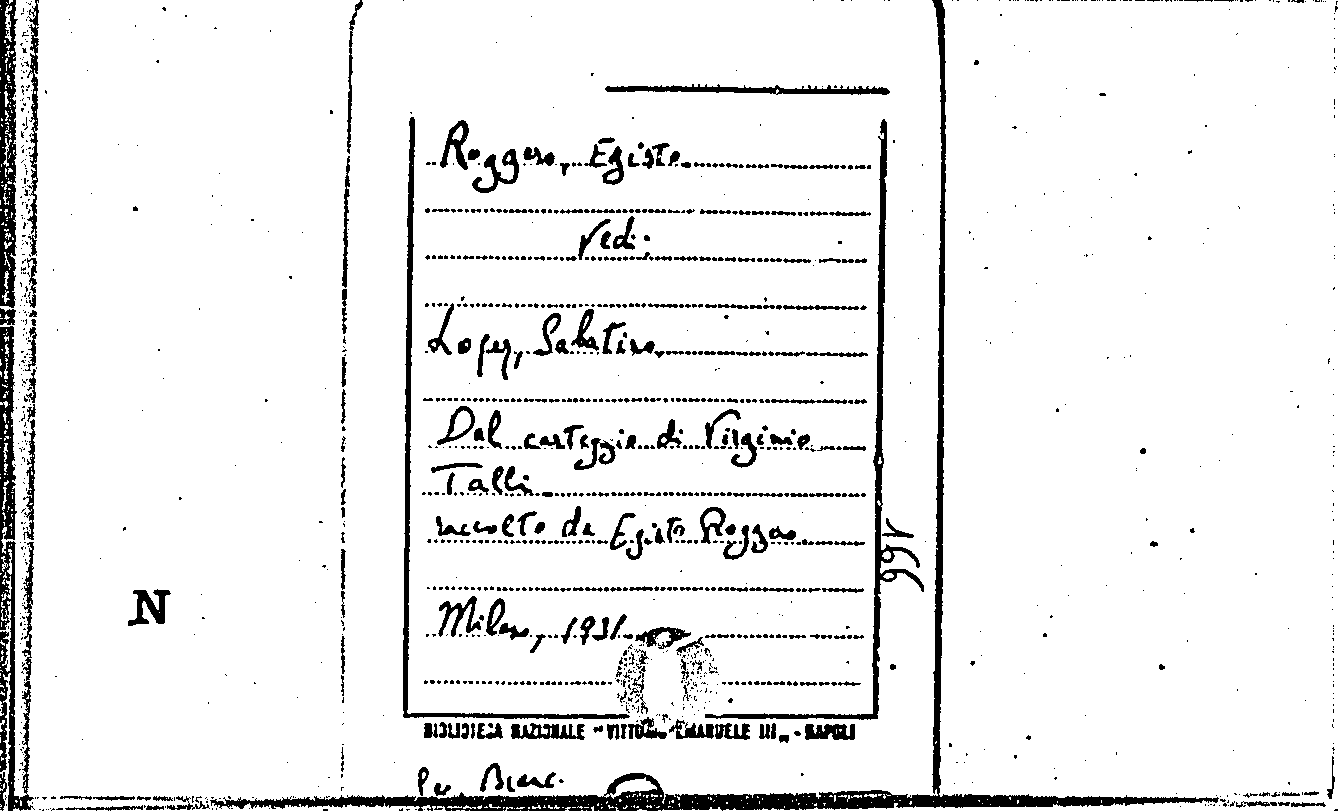 Roggero, Egisto.
Vedi:
Lopez, Sabatino.
Dal carteggio di Virginio
Talli
raccolto da Egisto Roggero.
Milano, 1931.
166
N
BIBLIOTECA NAZIONALE "VITTORIO EMANUELE III" - NAPOLI